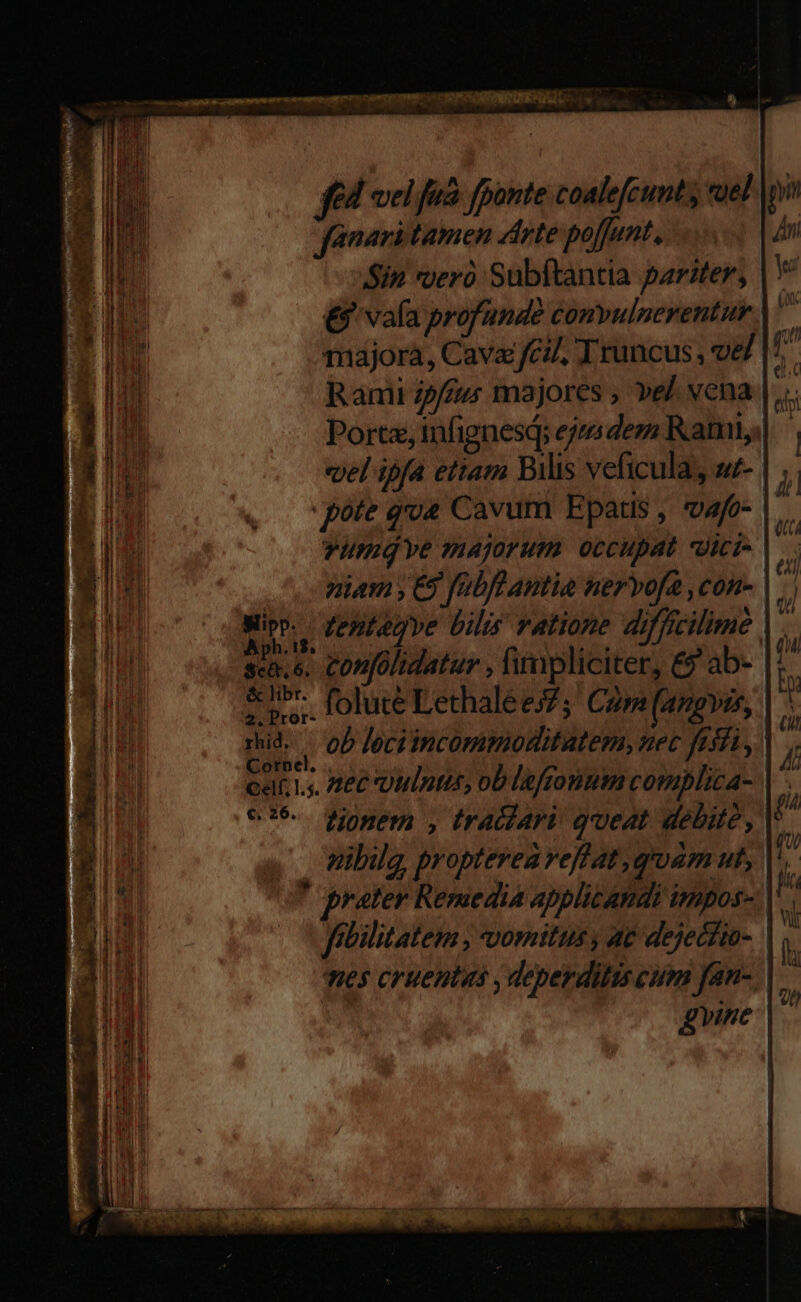 ſed vel ſuâ ſponte coaleſcunt, vel
ſanari tamen Arte poſſunt,
Sin verò Subſtantia pariter,
& vaſa profundè convulnerentur
majora, Cavæ ſcil, Truncus, vel
Rami ipſius majores, vel vena
Portæ, inſignesq; ejusdem Rami,
vel ipſa etiam Bilis veſicula, ut-
pote qvæ Cavum Epatis, vaſo-
rumqve majorum occupat vici-
niam, & ſubſtantiæ nervoſæ, con-
tentæqve bilis ratione difficilimè
conſolidatur, ſimpliciter, & ab-
ſolutè Lethale eſt; Cùm ſangvis,
ob loci incommoditatem, nec ſiſti,
nec vulnus, ob læſionum complica-
tionem, tractari qveat debitè,
nihilq, propterea reſtat, qvàm ut,
præter Remedia applicandi impos-
ſibilitatem, vomitus, ac dejectio-
nes cruentas, deperditis cum ſan-
gvine
Hipp.
Aph. 18.
Sect. 6.
& libr.
2. Pror-
rhid.
Cornel.
Celſ. l. 5.
c. 26.